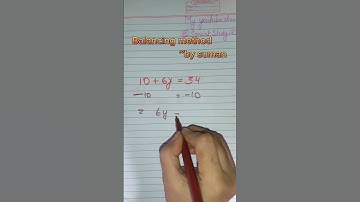 My youtube
Balancing method
~by suman
10 + 6y = 34
-10 = -10
= 6y -